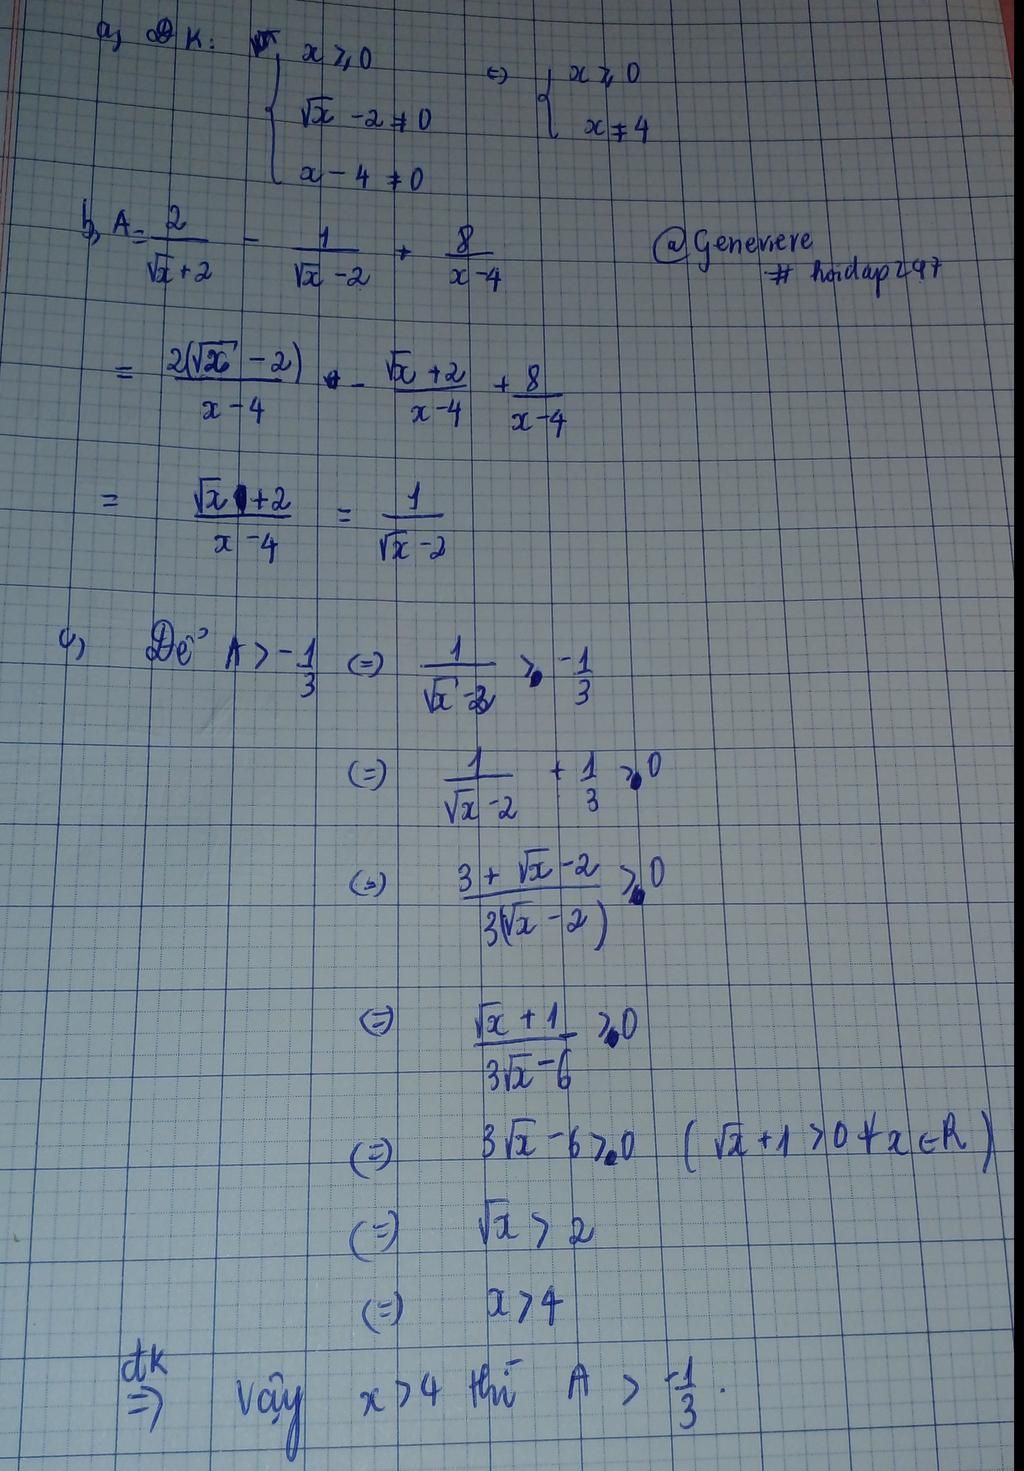 a, ĐK: { x ≥ 0 ⇔ { x ≥ 0
√x - 2 ≠ 0 x ≠ 4
x - 4 ≠ 0
b, A = 2/(√x + 2) - 1/(√x - 2) + 8/(x - 4) @Genevieve
# hoidap247
= 2(√x - 2)/(x - 4) - (√x + 2)/(x - 4) + 8/(x - 4)
= (√x + 2)/(x - 4) = 1/(√x - 2)
c, Để A > -1/3 (=) 1/(√x - 2) > -1/3
(=) 1/(√x - 2) + 1/3 > 0
(=) (3 + √x - 2)/(3(√x - 2)) > 0
(=) (√x + 1)/(3√x - 6) > 0
(=) 3√x - 6 > 0 (√x + 1 > 0 ∀x ∈ R)
(=) √x > 2
(=) x > 4
đk
=> Vậy x > 4 thì A > -1/3.